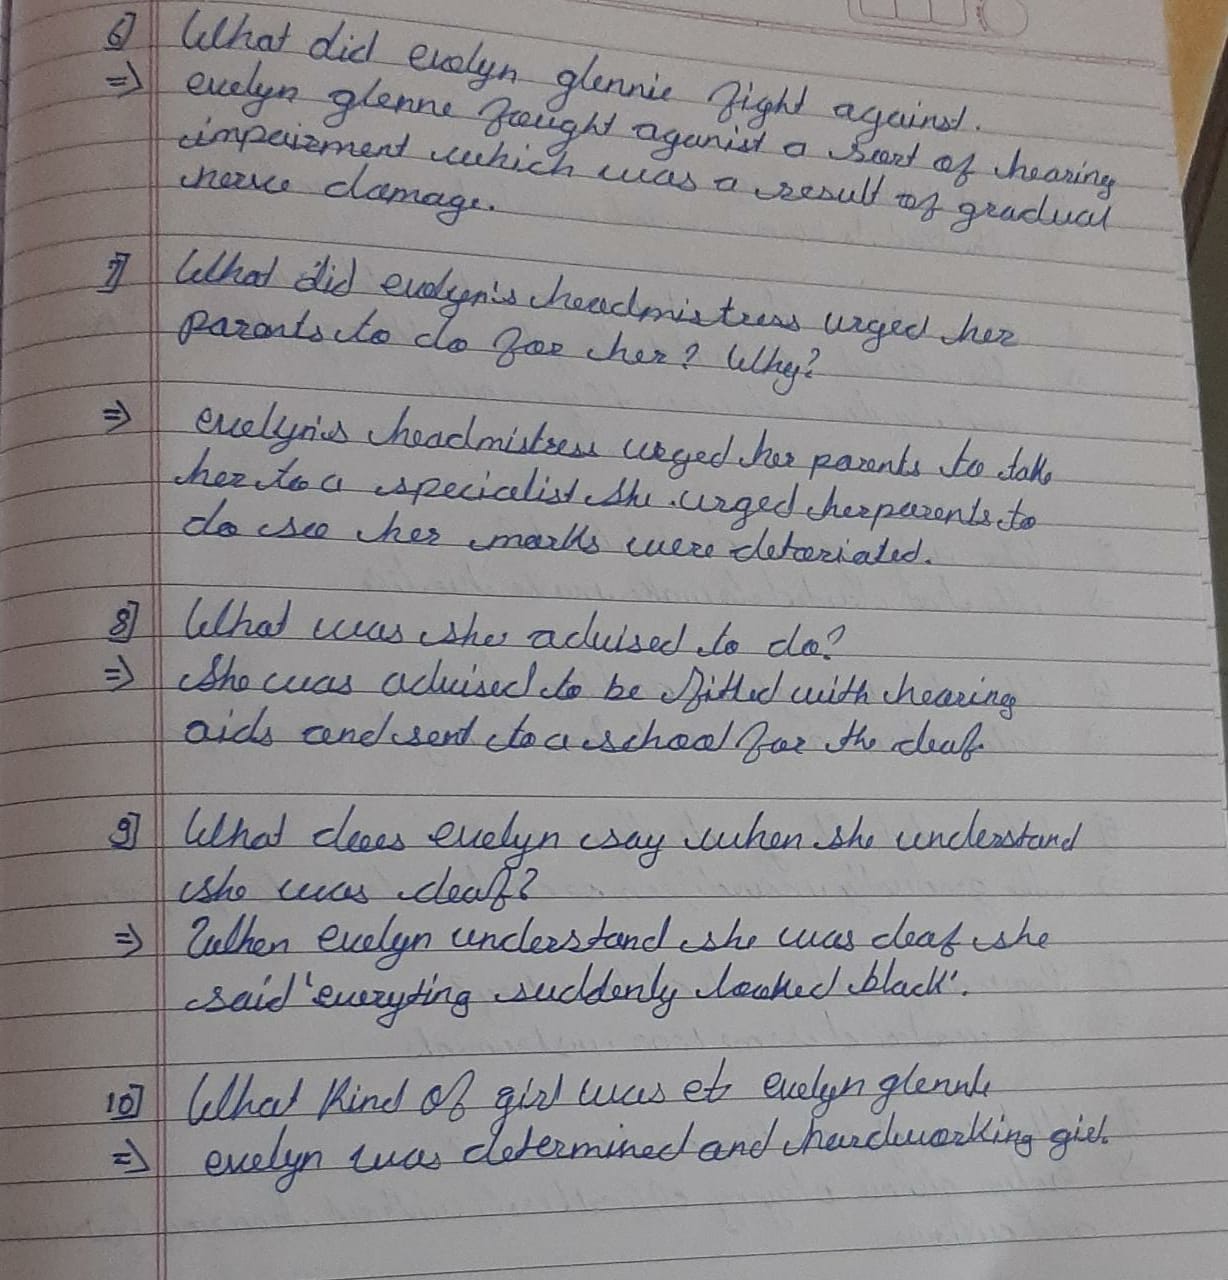 6] What did evelyn glennie fight against.
=> evelyn glenne fought aganist a sort of hearing
impairment which was a result of gradual
nerve damage.
7] What did evelyn's headmistress urged her
parents to do for her? Why?
=> evelyn's headmistress urged her parents to take
her to a specialist she urged her parents to
do so her marks were detoriated.
8] What was she advised to do?
=> She was advised to be fitted with hearing
aids and sent to a school for the deaf
9] What does evelyn say when she understand
she was deaf?
=> When evelyn understand she was deaf she
said 'everyting suddenly looked black'.
10] What kind of girl was evelyn glennie
=> evelyn was determined and hardworking girl.